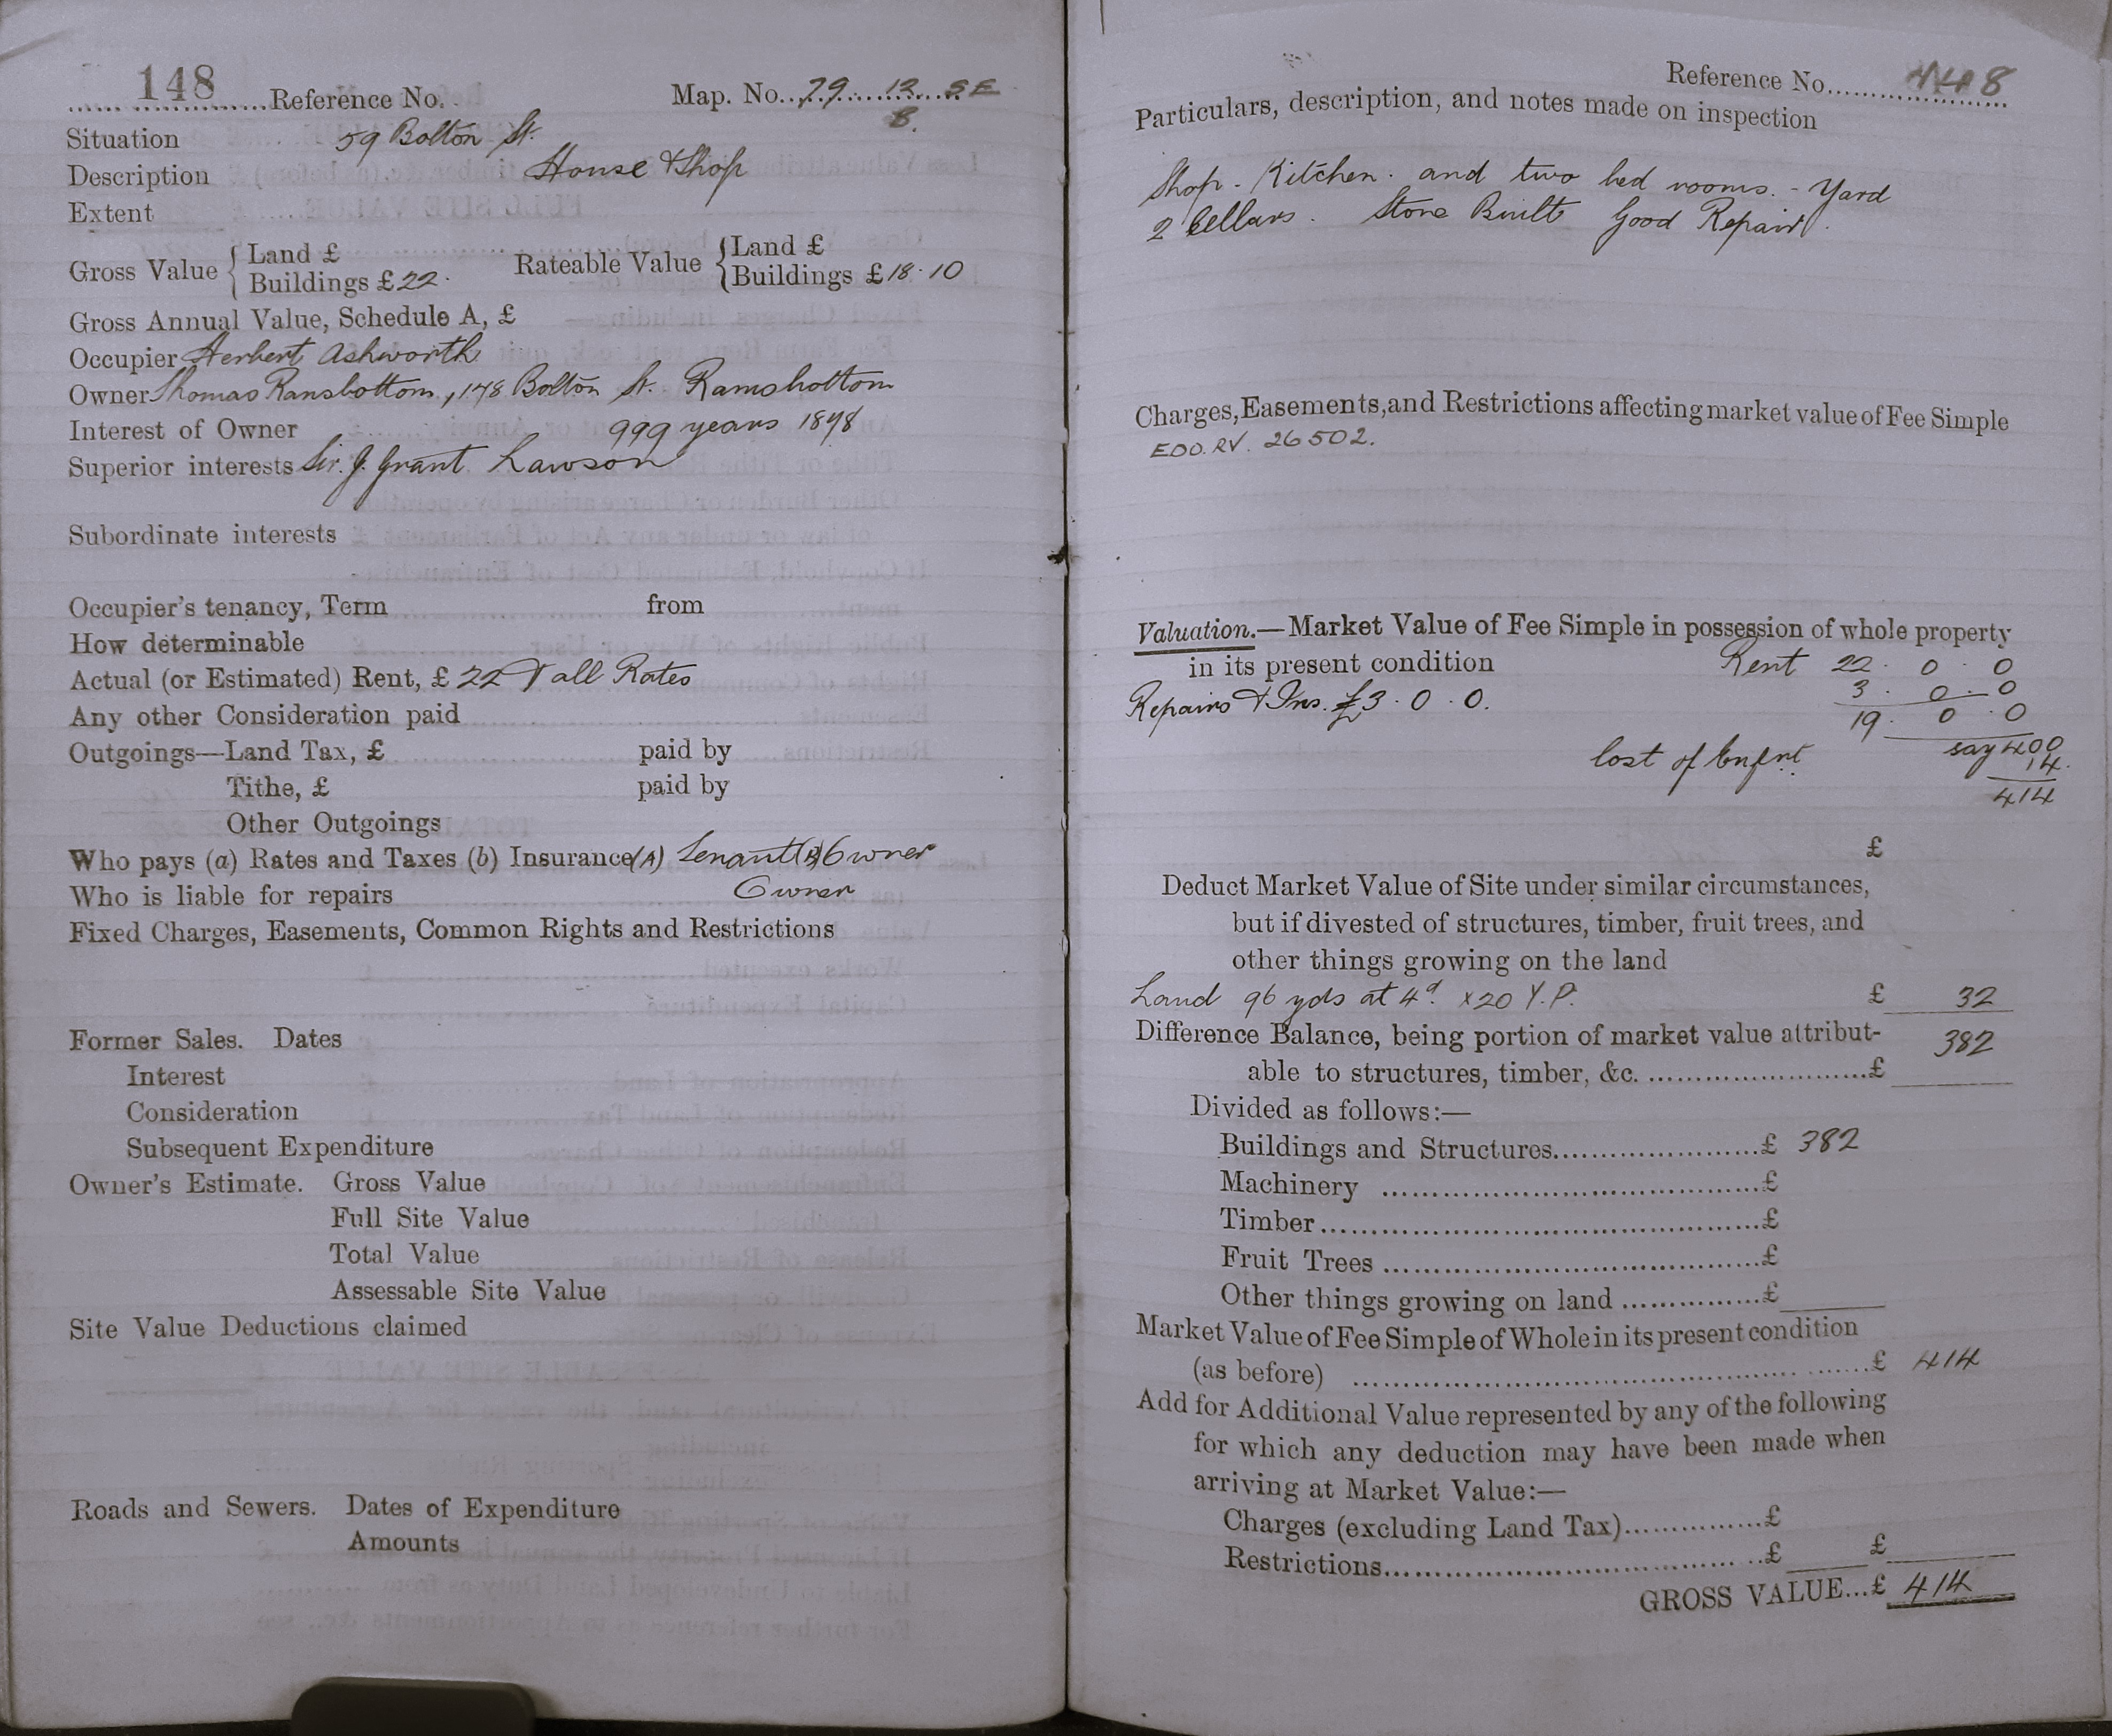 148 Reference No. Map. No. 79. 12. SE
8.
Situation 59 Bolton St.
Description House & Shop
Extent
Gross Value { Land £ Rateable Value { Land £
Buildings £ 22. Buildings £ 18.10
Gross Annual Value, Schedule A, £
Occupier Herbert Ashworth
Owner Thomas Ramsbottom, 178 Bolton St. Ramsbottom
Interest of Owner 999 years 1898
Superior interests Sir. J. Grant Lawson
Subordinate interests
Occupier's tenancy, Term from
How determinable
Actual (or Estimated) Rent, £ 22 & all Rates
Any other Consideration paid
Outgoings—Land Tax, £ paid by
Tithe, £ paid by
Other Outgoings
Who pays (a) Rates and Taxes (b) Insurance (A) Tenant (B) Owner
Who is liable for repairs Owner
Fixed Charges, Easements, Common Rights and Restrictions
Former Sales. Dates
Interest
Consideration
Subsequent Expenditure
Owner's Estimate. Gross Value
Full Site Value
Total Value
Assessable Site Value
Site Value Deductions claimed
Roads and Sewers. Dates of Expenditure
Amounts
Reference No.
Particulars, description, and notes made on inspection
Shop - Kitchen. and two bed rooms. - Yard
2 Cellars. Stone Built Good Repair.
Charges, Easements, and Restrictions affecting market value of Fee Simple
EDO. RV. 26502.
Valuation.—Market Value of Fee Simple in possession of whole property
in its present condition Rent 22. 0. 0
Repairs & Ins. £3. 0. 0. 3. 0. 0
19. 0. 0
say 400
Cost of Enfmt. 14.
414
£
Deduct Market Value of Site under similar circumstances,
but if divested of structures, timber, fruit trees, and
other things growing on the land
Land 96 yds at 4d. x 20 Y.P. £ 32
Difference Balance, being portion of market value attribut- 382
able to structures, timber, &c. £
Divided as follows:—
Buildings and Structures £ 382
Machinery £
Timber £
Fruit Trees £
Other things growing on land £
Market Value of Fee Simple of Whole in its present condition
(as before) £ 414
Add for Additional Value represented by any of the following
for which any deduction may have been made when
arriving at Market Value:—
Charges (excluding Land Tax) £
Restrictions £ £
GROSS VALUE...£ 414